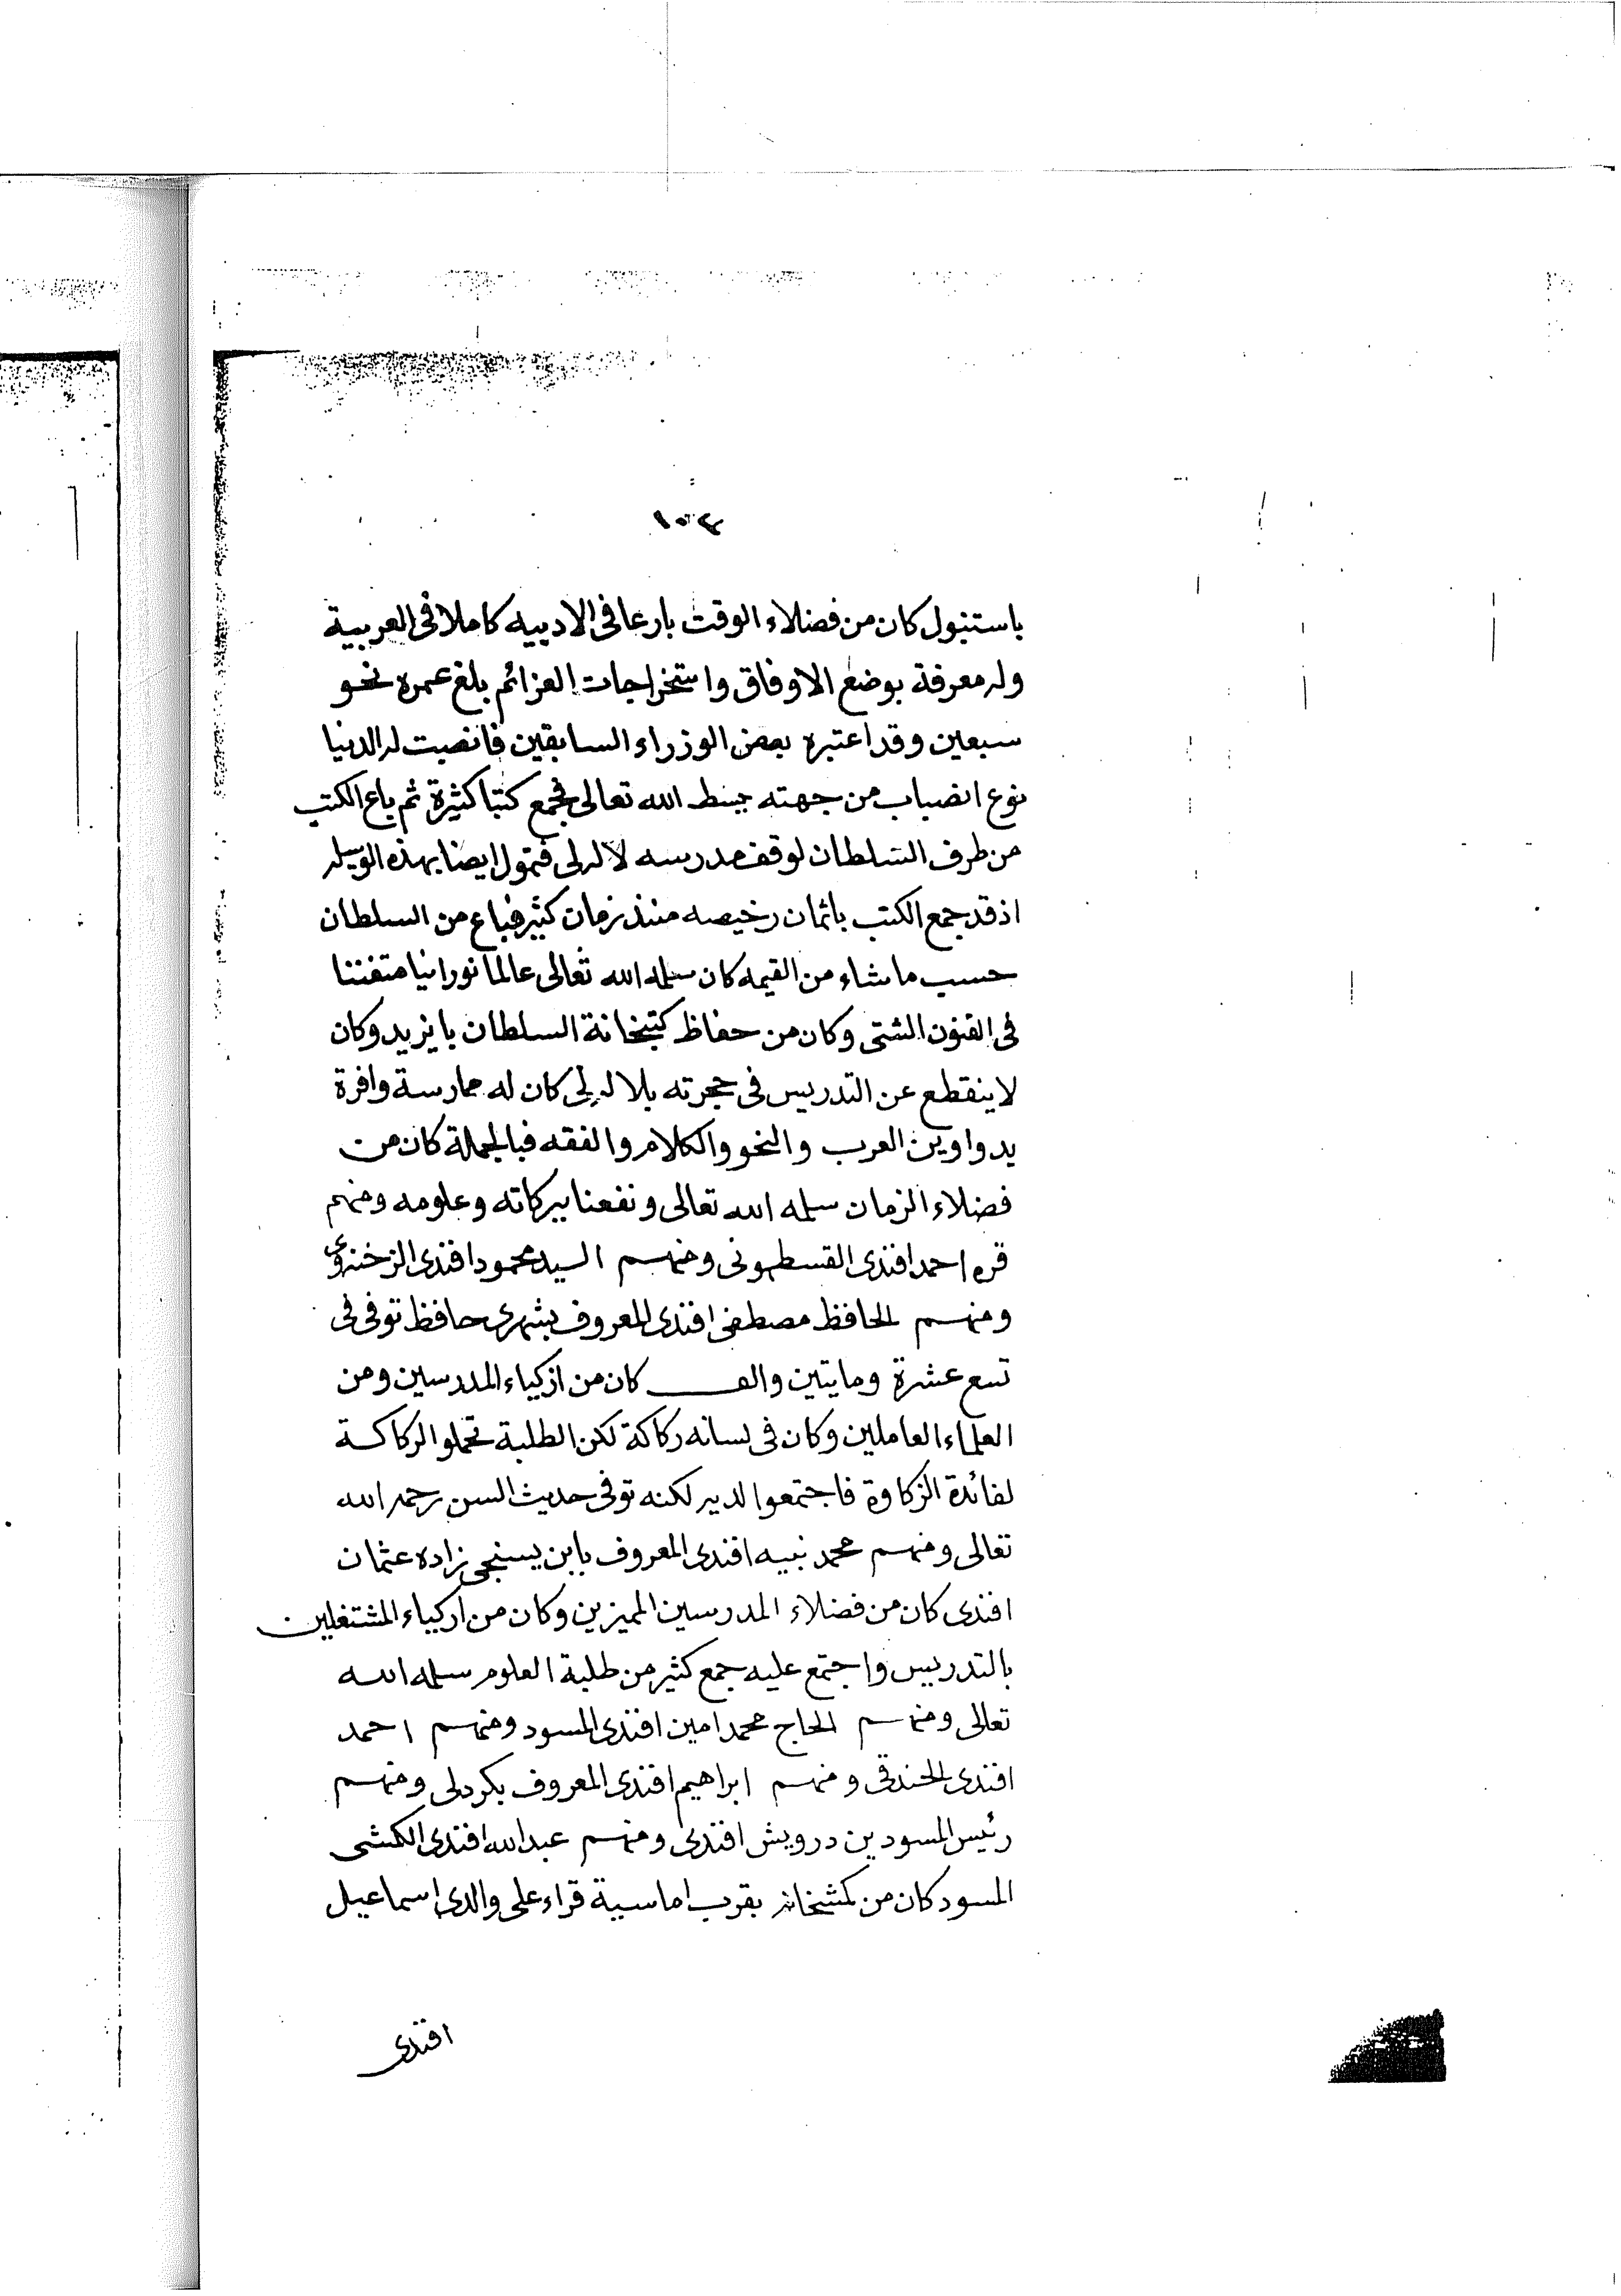 ١٠٤
باستنبول كان من فضلاء الوقت بارعا فى الادبيه كاملا فى العربية
وله معرفة بوضع الاوفاق واستخراجات العزائم بلغ عمره نحو
سبعين وقد اعتبره بعض الوزراء السابقين فانصبت له الدنيا
نوع انصباب من جهته ببسط الله تعالى فجمع كتبا كثيرة ثم باع الكتب
من طرف السلطان لوقف مدرسه لاله لى فتمول ايضا بهذه الوسيله
اذ قد جمع الكتب باثمان رخيصه منذ زمان كثير فباع من السلطان
حسب ما شاء من القيمه كان سلمه الله تعالى عالما نورانيا متفننا
فى الفنون الشتى وكان من حفاظ كتبخانة السلطان بايزيد وكان
لا ينقطع عن التدريس فى حجرته بلاله لى كان له ممارسة وافرة
بدواوين العرب والنحو والكلام والفقه فبالجملة كان من
فضلاء الزمان سلمه الله تعالى ونفعنا ببركاته وعلومه ومنهم
قره احمد افندى القسطمونى ومنهم السيد محمود افندى
ومنهم الحافظ مصطفى افندى المعروف بشهرى حافظ توفى فى
تسع عشرة ومايتين والف كان من ازكياء المدرسين ومن
العلماء العاملين وكان فى لسانه ركاكة لكن الطلبة تحملوا الركاكة
لفائدة الزكاوة فاجتمعوا لديه لكنه توفى حديث السن رحمه الله
تعالى ومنهم محمد نبيه افندى المعروف بابن يسنجى زاده عثمان
افندى كان من فضلاء المدرسين المميزين وكان من ازكياء المشتغلين
بالتدريس واجتمع عليه جمع كثير من طلبة العلوم سلمه الله
تعالى ومنهم الحاج محمد امين افندى المسود ومنهم احمد
افندى الخندقى ومنهم ابراهيم افندى المعروف بكردلى ومنهم
رئيس المسودين درويش افندى ومنهم عبد الله افندى الكمشى
المسود كان من كمشخانه بقرب اماسية قراء على والدى اسماعيل
افندى